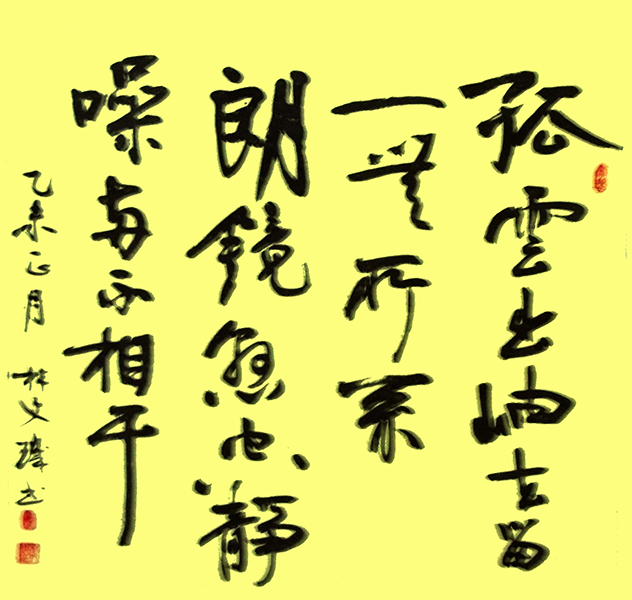 孤雲出岫去留
一無所系
朗鏡懸空靜
噪两不相干
乙未正月 林文书